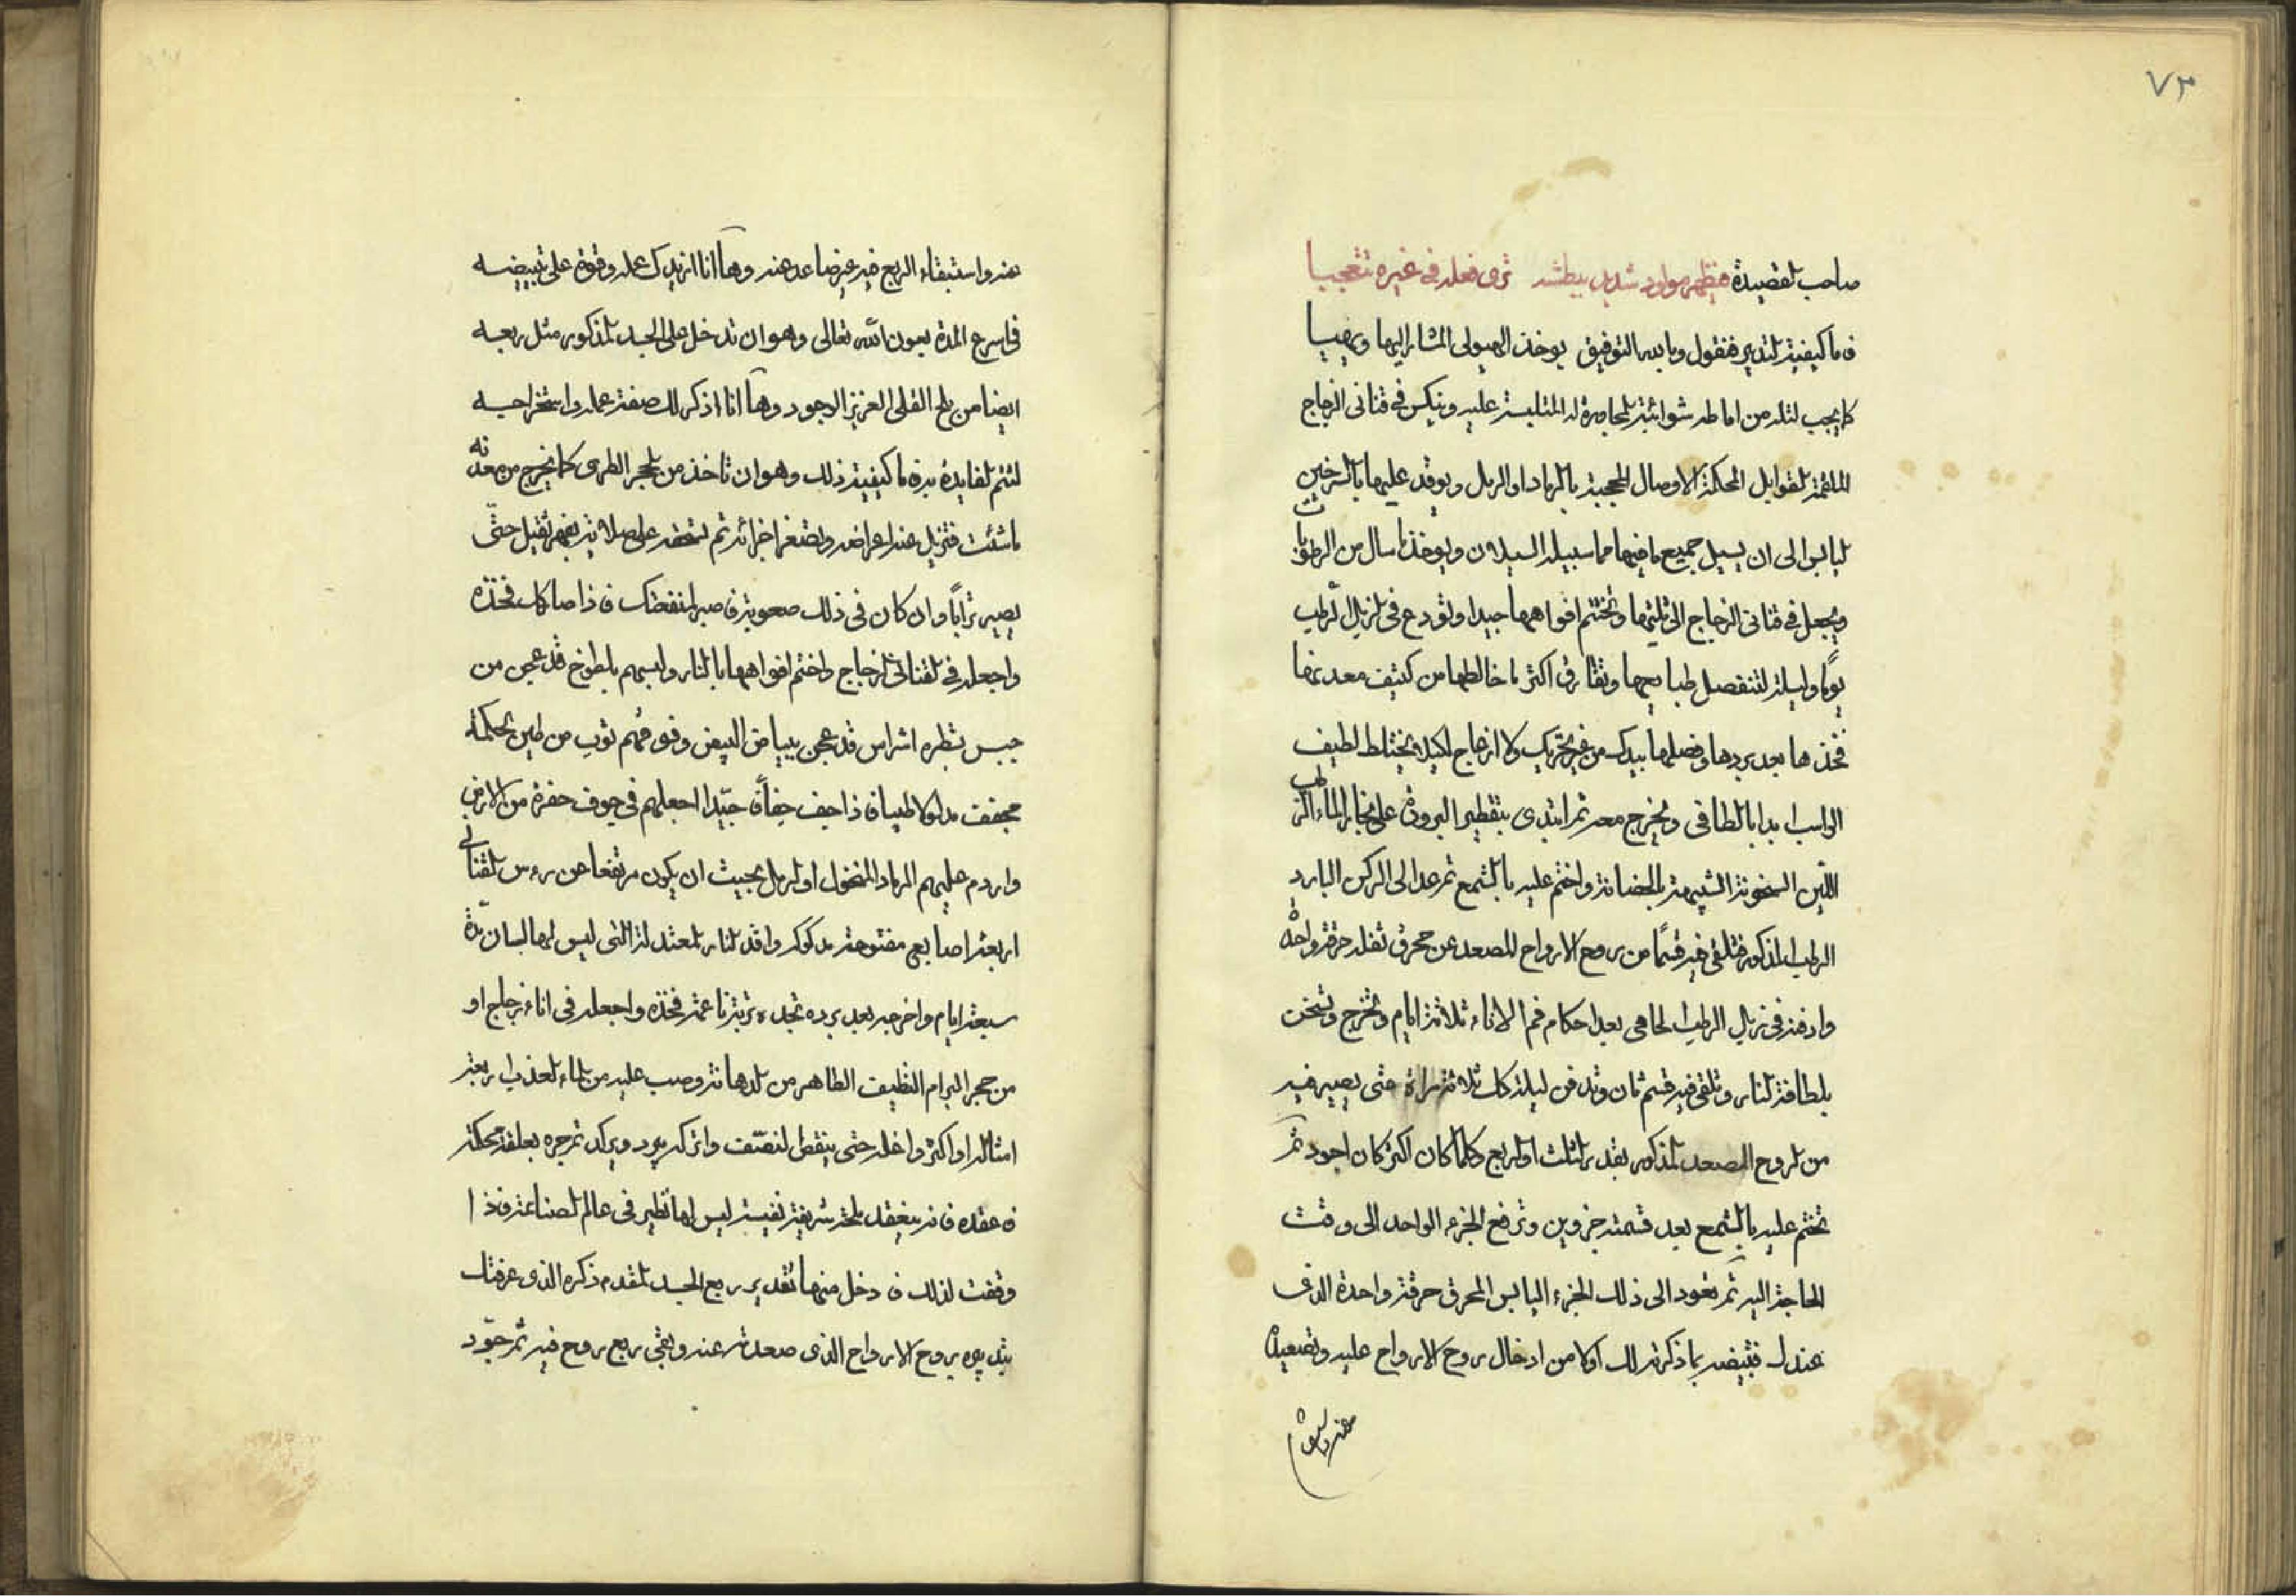 ٧٣
صاحب القصيدة فيظهر مولود شديد بيطشه ترى فعله في غيره تتعجبا
فاما كيفية التدبير فنقول وبالله التوفيق يوخذ الهيولى المشار اليها ويهيا
كما يجب لتله من اماطه شوائبة المجاورة له المتلبسة عليه وينكس في قناني الزجاج
الملقمة القوابل المحكمة الاوصال المحجبة بالرماد او الرمل ويوقد عليها بالسرخين
اليابس الى ان يسيل جميع ما فيها مما سبيله السيلان ويوخذ ما سال من الرطوبات
ويجعل في قناني الزجاج الى ثلثيها وتختم افواهها جيدا وتودع في الزبل الرطب
يوما وليلة لتنفصل طبايعها وتفارق اكثر ما خالطها من كثيف معدنها
فخذها بعد بردها وفصلها بيدك من غير تحريك ولا ازعاج لكيلا يختلط لطيف
الراسب ابدا بالطافي ويخرج معه ثم ابتدى بتقطير البرودة على بخار الماء الرطب
اللين السخونة الشبيهة بالحضانة واختم عليه بالشمع ثم عد الى الركن البارد
الرطب المذكور فتلقى فيه قسما من روح الارواح المصعد عن محرق ثفله حرقة واحدة
وادفنه في زبل الرطب الحامي بعد احكام فم الاناء ثلاثة ايام وتخرج وتسخن
بلطافة النار وتلقى فيه قسم ثان وتدفن ليلة كل ثلاثة مراة حتى يصير فيه
من الروح المصعد المذكور بقدر الثلث او الربع وكلما كان اكثر كان اجود ثم
تختم عليه بالشمع بعد قسمته جزوين وترفع الجزء الواحد الى وقت
الحاجة اليه ثم تعود الى ذلك الجزء اليابس المحرق حرقة واحدة الذي
عندك فتبيضه بما ذكرته لك اولا من ادخال روح الارواح عليه وتصعيده
عنه واستبقاء
عنه واستبقاء الربع فيه غير صاعد عنه وها انا ازيدك عمله وقوة على تبييضه
في اسرع المدة بعون الله تعالى وهو ان تدخل على الجسد المذكور مثل ربعه
ايضا من ملح القلى العزيز الوجود وها انا اذكر لك صفة عمله واستخراجه
لتتم الفايدة به فاما كيفية ذلك وهو ان تاخذ من الحجر الطرى كما يخرج من معدنه
ما شئت فتزيل عنه اعراضه وتصغر اجزائه ثم تسحقه على صلاية بفهر ثقيل حتى
يصير ترابا وان كان في ذلك صعوبة فاصبر لمنفعتك فاذا صار كك فخذه
واجعله في القناني الزجاج واختم افواهها بالنار ولبسهم بلطوخ قد عجن من
جبس بشطره اشراس قد عجن ببياض البيض وفوقهم ثوب من طين الحكمة
مجففت مدلوكا طيبا فاذا جف جفافا جيدا اجعلهم في جوف حفرة من الارض
واردم عليهم الرماد المنخول او الرمل بحيث ان يكون مرتفعا عن روس القناني
اربعة اصابع مفتوحة مدكوكه واقد النار المعتدلة التي ليس لها لسان مدة
سبعة ايام واخرجه بعد برده تجده تربة ناعمة فخذه واجعله في اناء زجاج او
من حجر البرام النظيف الطاهر من الدهانة وصب عليه من الماء العذب اربعة
امثاله او اكثر واغله حتى ينقص لنصف واتركه يبرد ويركد ثم جره بعلقة محكمة
فاعقده فانه ينعقد ملحة شريفة نفيسة ليس لها نظير في عالم الصناعة فاذا
وقفت لذلك فادخل منها تقدير ربع الجسد المقدم ذكره الذي عرفتك
بتدبيره بروح الارواح الذي صعدته عنه وبقى ربع روح فيه ثم جود